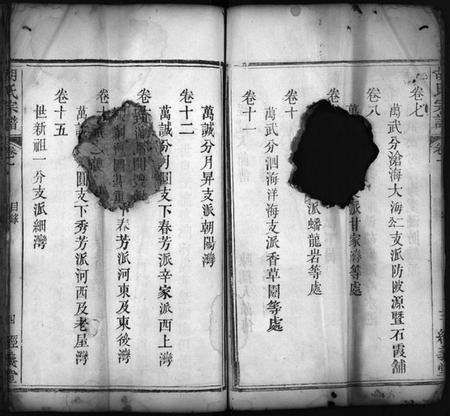 卷七
萬武分滄海大海公支派防陂源暨石霞舖
卷八
萬
派甘家灣等處
派蟠龍岩等處
卷十
萬武分泗海洋海支派香草園等處
卷十一
三 經義堂
胡氏宗譜 卷一 目錄 四 經義堂
萬誠分月昇支派朝陽灣
卷十二
萬誠分月圓支下春芳派辛家派西上灣
卷十
支下春芳派河東及東後灣
卷十
萬 圓支下秀芳派河西及老屋灣
卷十五
世新祖一分支派細灣